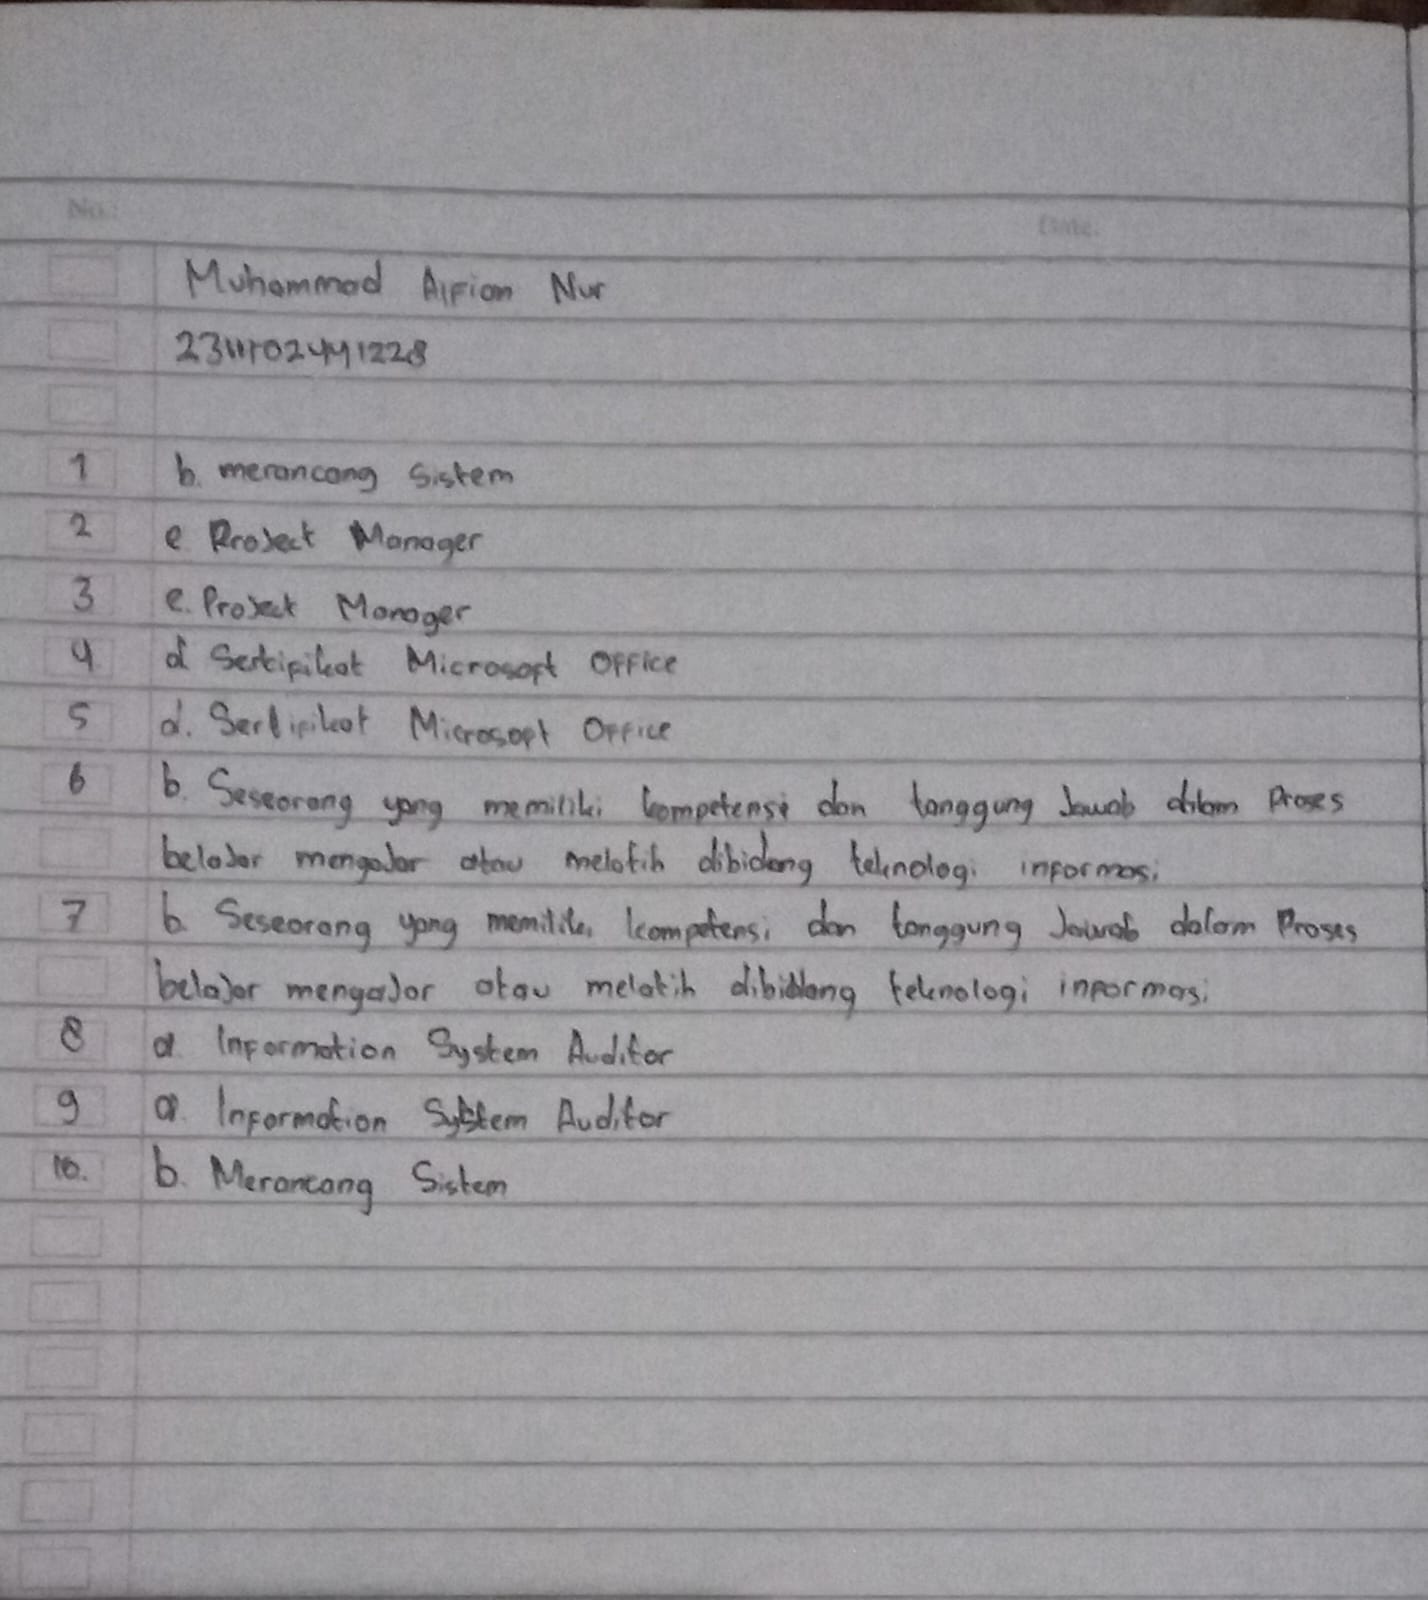 No.:
Date:
Muhammad Alfian Nur
2311102441228
1 b. merancang Sistem
2 e Project Manager
3 e. Project Manager
4 d Sertipikat Microsopt Office
5 d. Sertipikat Microsopt Office
6 b. Seseorang yang memiliki kompetensi dan tanggung Jawab dalam Proses
belajar mengajar atau melatih dibidang teknologi informasi
7 b. Seseorang yang memiliki kompetensi dan tanggung Jawab dalam Proses
belajar mengajar atau melatih dibidang teknologi inpormasi
8 a. Information System Auditor
9 a. Information System Auditor
10. b. Merancang Sistem